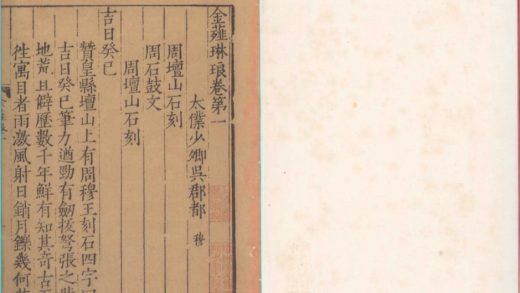 金薤琳琅卷第一
太僕少卿吳郡都 穆
周壇山石刻
周石鼓文
周壇山石刻
吉日癸巳
贊皇縣壇山上有周穆王刻石四字
吉日癸巳筆力遒勁有劒拔弩張之
地荒且僻歷數千年鮮有知其奇古
徃寓目者雨激風射日銷月鑠幾何